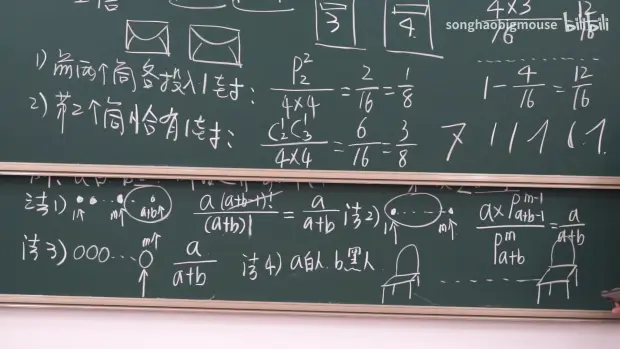 songhaobigmouse bilibili
3 4
4×3/16 12/16
1) 前两个筒各投入1封: P₂²/4×4 = 2/16 = 1/8
1 - 4/16 = 12/16
2) 第2个筒恰有1封: C₂¹C₃¹/4×4 = 6/16 = 3/8
法1) 1个 m个 a+b个 a(a+b-1)!/(a+b)! = a/a+b 法2) 1个 m个 a×P_{a+b-1}^{m-1}/P_{a+b}^{m} = a/a+b
法3) 000… m个 a/a+b 法4) a白人 b黑人